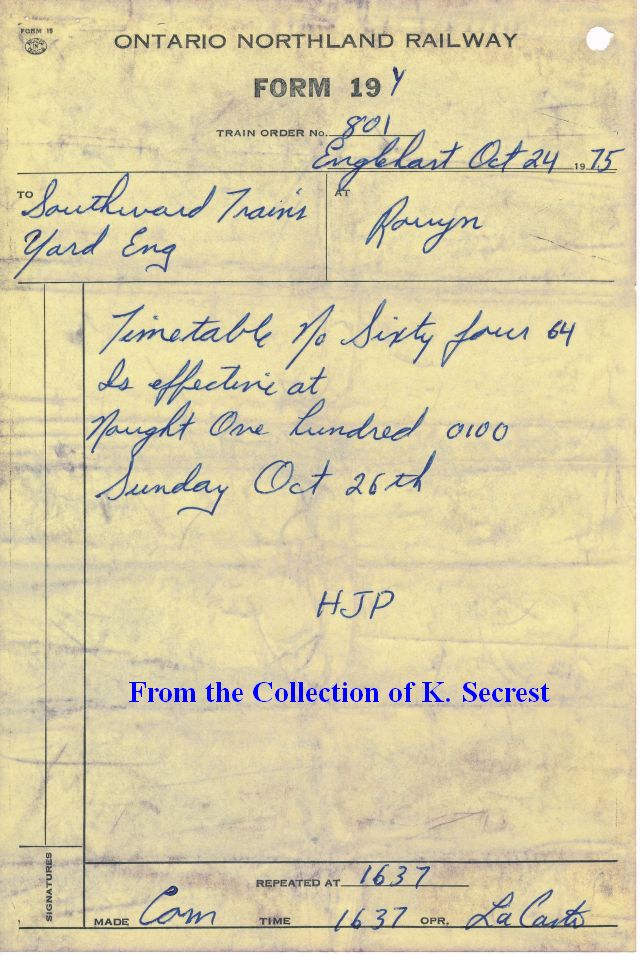 FORM 19
ONTARIO NORTHLAND RAILWAY
FORM 19 Y
TRAIN ORDER No. 801
Englehart Oct 24 1975
TO Southward Trains AT Rouyn
Yard Eng
Timetable No Sixty four 64
Is effective at
Nought One hundred 0100
Sunday Oct 26th
HJP
From the Collection of K. Secrest
REPEATED AT 1637
SIGNATURES
MADE Com TIME 1637 OPR.